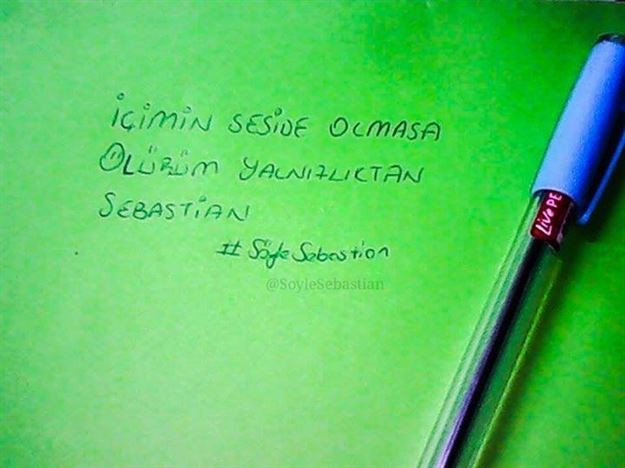 İÇİMİN SESİDE OLMASA
ÖLÜRÜM YALNIZLIKTAN
SEBASTİAN
# Söyle Sebastian
@SoyleSebastian
LivePE